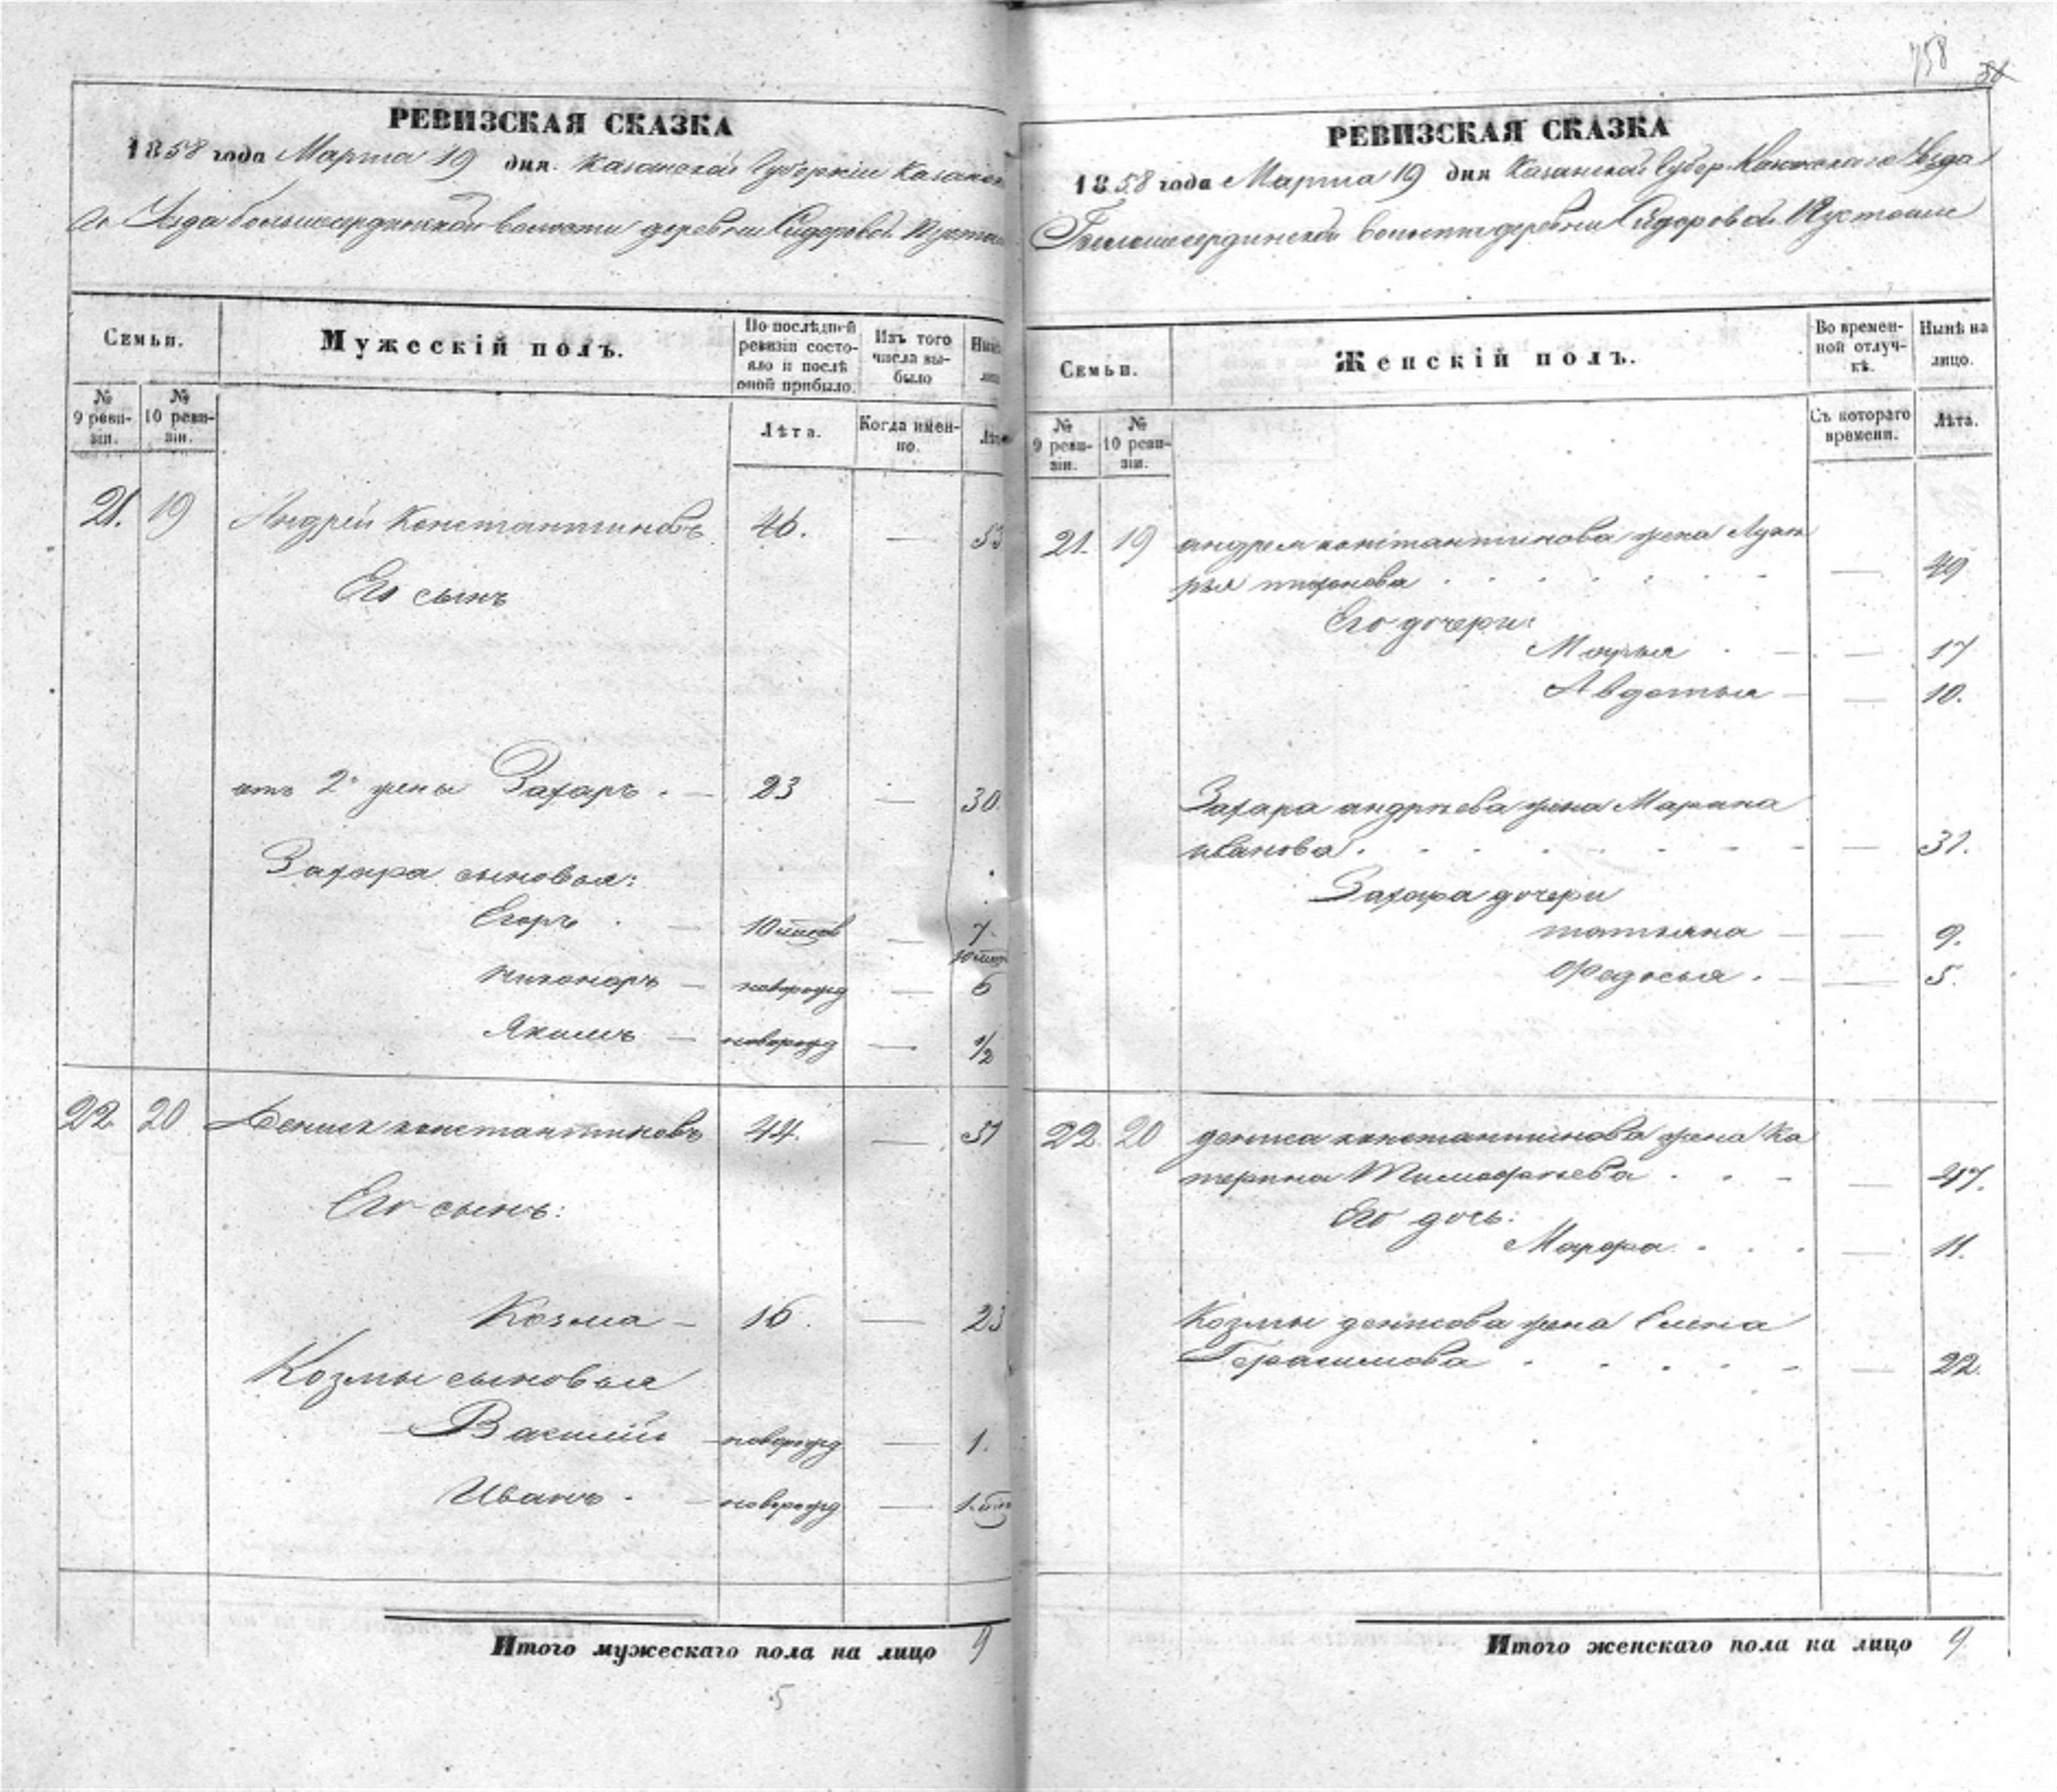 758
РЕВИЗСКАЯ СКАЗКА
1858 года Марта 19 дня. Казанской Губерніи Казанска
го Уезда большесердинской волости деревни Сидоровой Пустоши
Семьи.
Мужескій полъ.
По послѣдней ревизіи состояло и послѣ оной прибыло.
Изъ того числа выбыло
Нынѣ
№ 9 ревизіи.
№ 10 ревизіи.
Лѣта.
Когда именно.
Лѣта
21. 19 Андрей Константиновъ 46. — 53
Его сынъ
отъ 2й жены Захаръ . — 23 — 30.
Захара сыновья:
Егоръ . — 10 мѣсяцов — 7. 10 мѣс
Никаноръ — новорожд — 6
Якимъ — новорожд — 1/2
22. 20 Денисъ константиновъ 44. — 51
Его сынъ:
Козма — 16. — 23
Козмы сыновья
Василій — новорожд — 1.
Иванъ . — новорожд — 1 мѣс
Итого мужескаго пола на лицо 9
5
РЕВИЗСКАЯ СКАЗКА
1858 года Марта 19 дня Казанской Губер. Казанскаго Уезда
Большесердинской волости деревни Сидоровой Пустоши
Семьи.
Женскій полъ.
Во временной отлучкѣ.
Нынѣ на лицо.
№ 9 ревизіи.
№ 10 ревизіи.
Съ котораго времени.
Лѣта.
21. 19 андрея константинова жена Лукѣ
рья тихонова — 49
Его дочери:
Марья — 17
Авдотья — 10.
Захара андрѣева жена Марина
иванова . — 31.
Захара дочери
татьяна — 9.
Федосья . — 5.
22. 20 дениса константинова жена Ка
терина Тимофѣева — 47.
Его дочь:
Марфа — 11.
Козмы денисова жена Елена
Герасимова — 22.
Итого женскаго пола на лицо 9